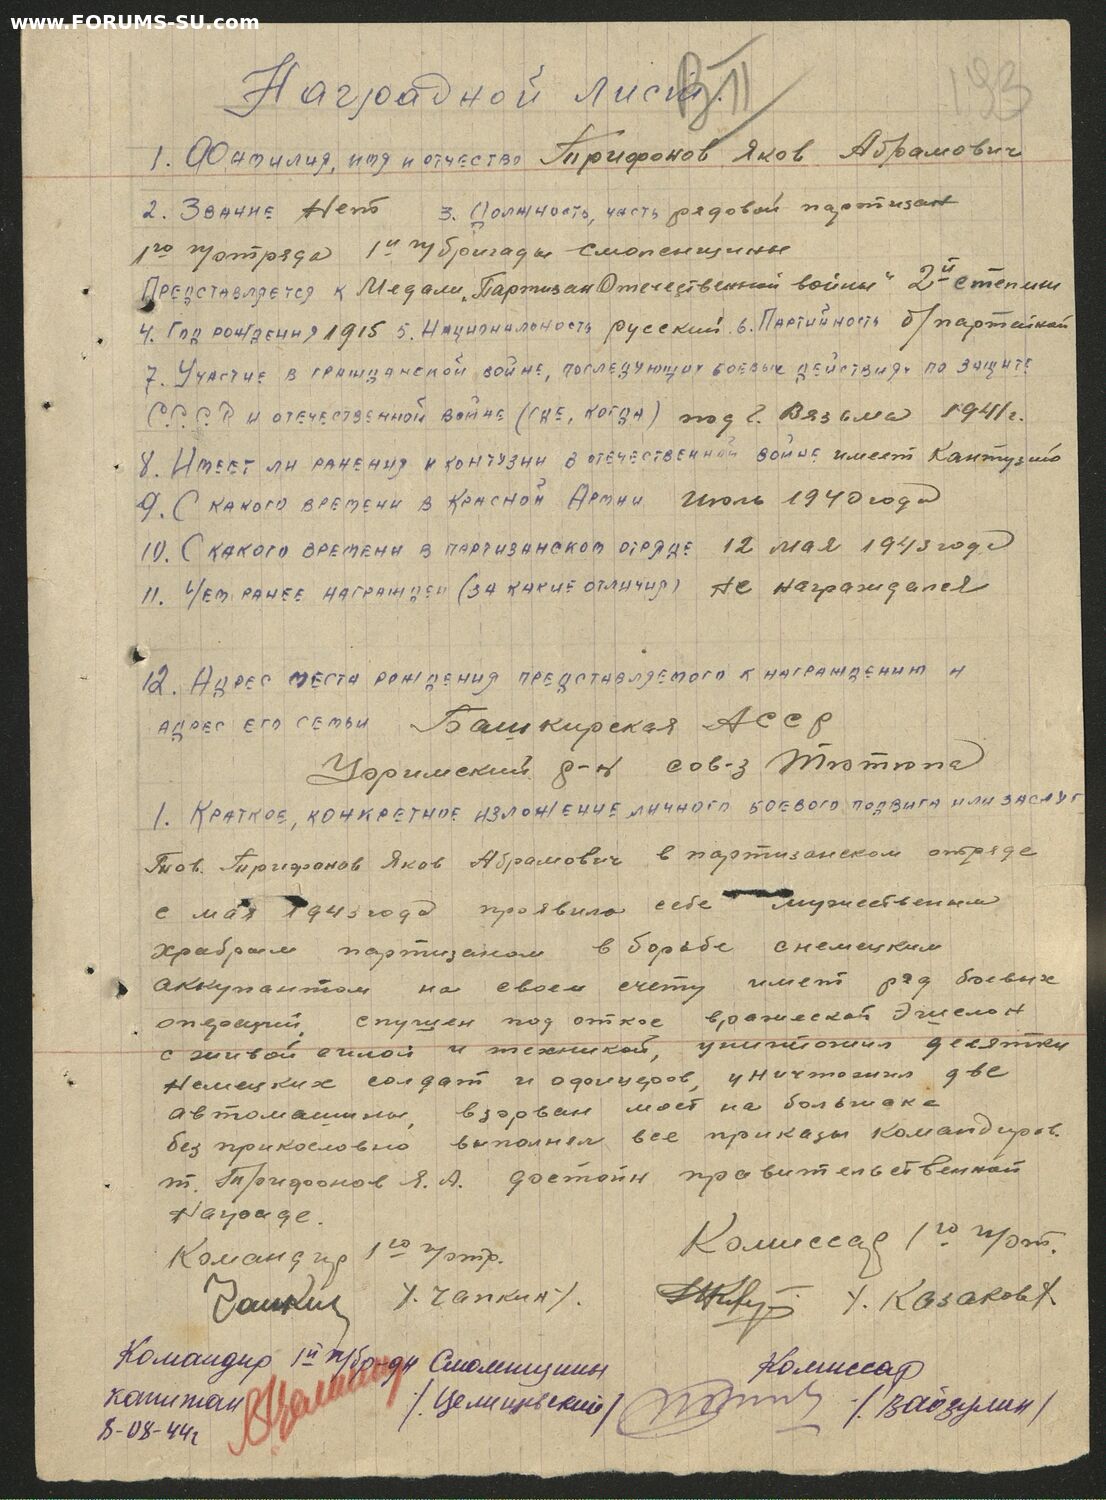 www.FORUMS-SU.com
193
Наградной лист.
1. Фамилия, имя и отчество Трифонов Яков Абрамович
2. Звание Нет 3. Должность, часть рядовой партизан
1го п/отряда 1й п/бригады Смоленщины
Представляется к Медали „Партизан Отечественной войны" 2й степени
4. Год рождения 1915 5. Национальность русский 6. Партийность б/партейной
7. Участие в гражданской войне, последующих боевых действиях по защите
С.С.С.Р и отечественной войне (где, когда) под г. Вязьма 1941г.
8. Имеет ли ранения и контузии в отечественной войне имеет Кантузию
9. С какого времени в Красной Армии июль 1940 года
10. С какого времени в партизанском отряде 12 мая 1943 года
11. Чем ранее награжден (за какие отличия) не награждался
12. Адрес места рождения представляемого к награждению и
адрес его семьи Башкирская АССР
р-н сов-з
1. Краткое, конкретное изложение личного боевого подвига или заслуг
Тов. Трифонов Яков Абрамович в партизанском отряде
с мая 1943 года проявил себе мужественным
храбрым партизаном в борьбе с немецким
аккупантом на своем счету имет ряд боевых
операций, спущен под откос вражеской эшелон
с живой силой и техникой, уничтожил десятки
немецких солдат и офицеров, уничтожил две
автомашины, взорван мост на большаке
без прикословно выполнял все приказы командиров.
т. Трифонов Я.А. достоин правительственной
награде.
Командир 1го п/отр. Комиссар 1го п/от.
/. Чапкин/. /. Казаков/.
Командир 1й п/бр-ды Смоленщины Комиссар
капитан /Целищевский/ /. Вайзулин/
8-08-44г